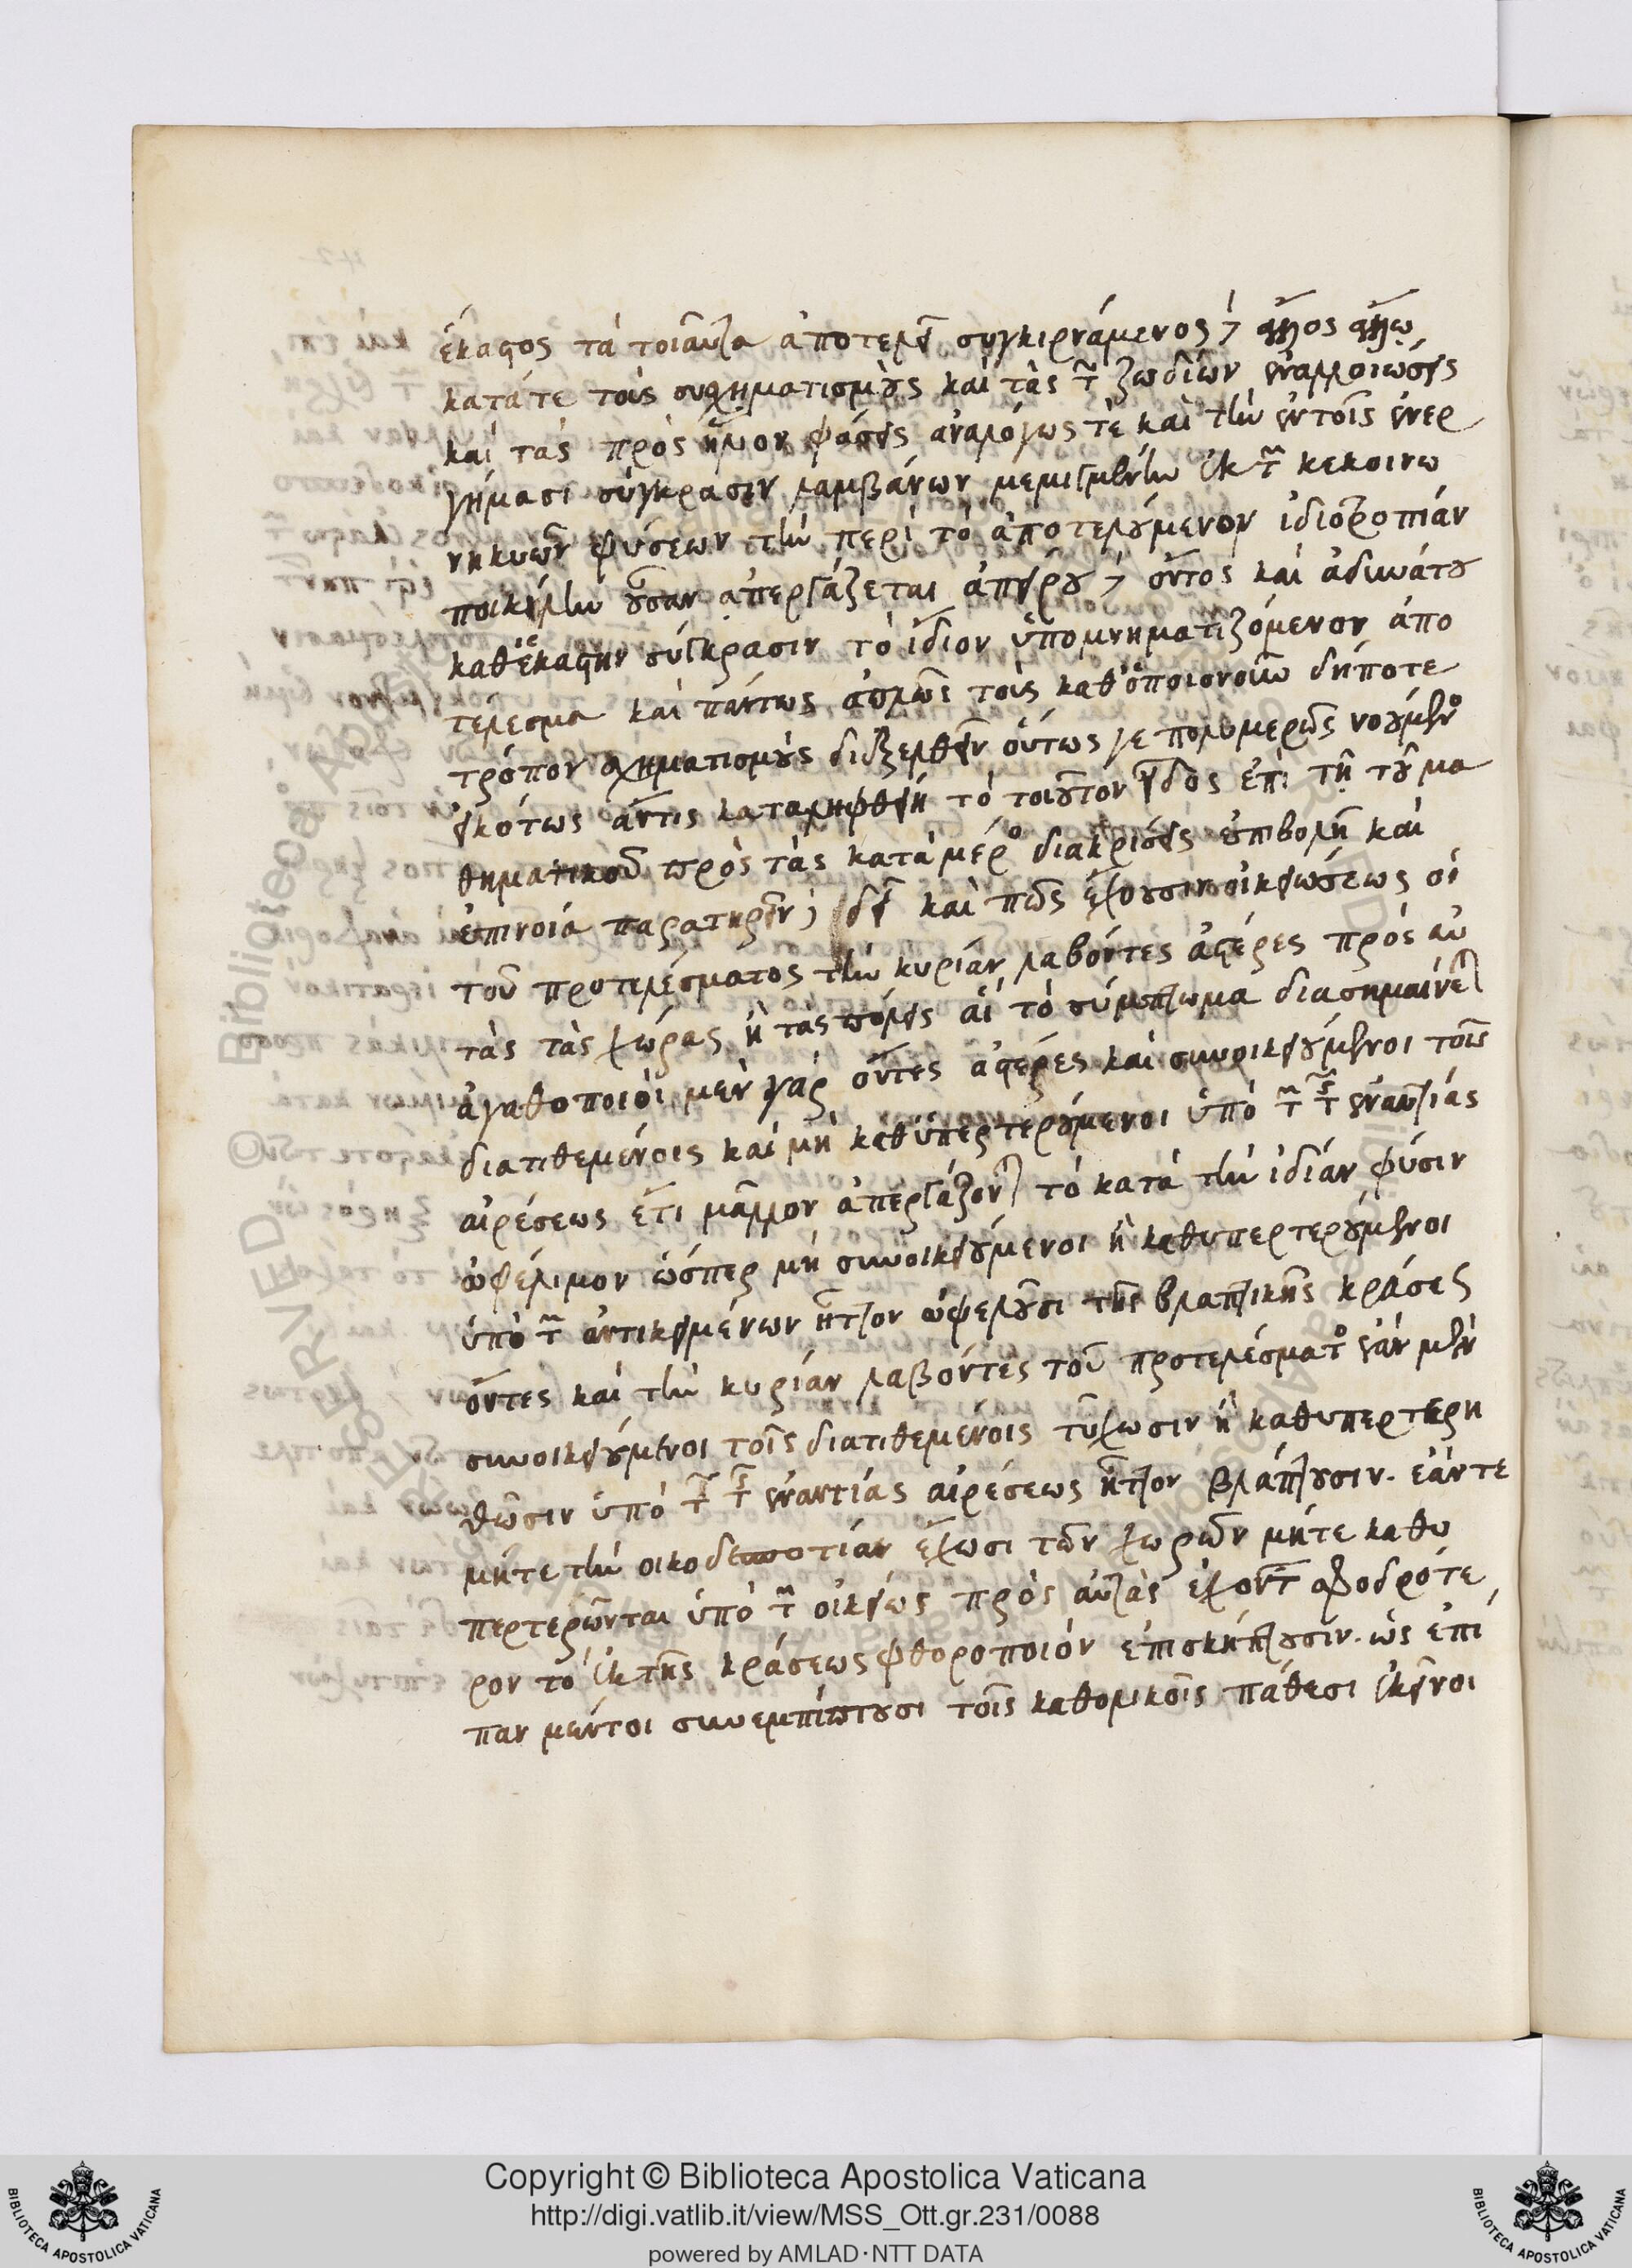 ἕκαστος τὰ τοιαῦτα ἀποτελεῖ συγκιρνάμενος δὲ ἄλλος ἄλλῳ
κατάτε τοὺς συσχηματισμοὺς καὶ τὰς τῶν ζωδίων ἐναλλοιώσεις
καὶ τὰς πρὸς ἥλιον φάσεις ἀναλόγως τὲ καὶ τὴν ἐν τοῖς ἐνερ
γήμασι σύγκρασιν λαμβάνων μεμιγμένην ἐκ τῶν κεκοινω
νηκυιῶν φύσεων τὴν περὶ τὸ ἀποτελούμενον ἰδιοτροπίαν
ποικίλην οὖσαν ἀπεργάζεται ἀπείρου δὲ ὄντος καὶ ἀδυνάτου
καθ' ἑκάστην σύγκρασιν τὸ ἴδιον ὑπομνηματιζόμενον ἀπο
τέλεσμα καὶ πάντως ἁπλῶς τοὺς καθ' ὁποιονοῦν δήποτε
τρόπον σχηματισμοὺς διεξελθεῖν οὕτως γε πολυμερῶς νοούμενον
εἰκότως ἄντις καταλειφθείη τὸ τοιοῦτον εἶδος ἐπὶ τῇ τοῦ μα
θηματικοῦ πρὸς τὰς κατὰ μέρος διακρίσεις ἐπιβολῇ καὶ
ἐπινοίᾳ παρατηρεῖν δὲ δεῖ καὶ πῶς ἔχουσιν οἰκειώσεως οἱ
τοῦ προτελέσματος τὴν κυρίαν λαβόντες ἀστέρες πρὸς αὐ
τὰς τὰς χώρας ἢ τὰς πόλεις αἷ τὸ σύμπτωμα διασημαίνεται
ἀγαθοποιοὶ μὲν γὰρ ὄντες ἀστέρες καὶ συνοικειούμενοι τοῖς
διατιθεμένοις καὶ μὴ καθυπερτερούμενοι ὑπὸ τῶν τῆς ἐναντίας
αἱρέσεως ἔτι μᾶλλον ἀπεργάζονται τὸ κατὰ τὴν ἰδίαν φύσιν
ὠφέλιμον ὥσπερ μὴ συνοικειούμενοι ἢ καθυπερτερούμενοι
ὑπὸ τῶν ἀντικειμένων ἧττον ὠφελοῦσι τῆς βλαπτικῆς κράσεως
ὄντες καὶ τὴν κυρίαν λαβόντες τοῦ προτελέσματος ἐὰν μὲν
συνοικειούμενοι τοῖς διατιθεμένοις τύχωσιν ἢ καθυπερτερη
θῶσιν ὑπὸ τῶν τῆς ἐναντίας αἱρέσεως ἧττον βλάπτουσιν. ἐάντε
μήτε τὴν οἰκοδεσποτίαν ἔχωσι τῶν χωρῶν μήτε καθυ
περτερῶνται ὑπὸ τῶν οἰκείως πρὸς αὐτὰς ἐχόντων σφοδρότε
ρον τὸ ἐκ τῆς κράσεως φθοροποιόν ἐπισκήπτουσιν. ὡς ἐπί
παν μέντοι συνεμπίπτουσι τοῖς καθολικοῖς πάθεσι ἐκεῖνοι
Copyright © Biblioteca Apostolica Vaticana
http://digi.vatlib.it/view/MSS_Ott.gr.231/0088
powered by AMLAD·NTT DATA
BIBLIOTECA APOSTOLICA VATICANA
BIBLIOTECA APOSTOLICA VATICANA